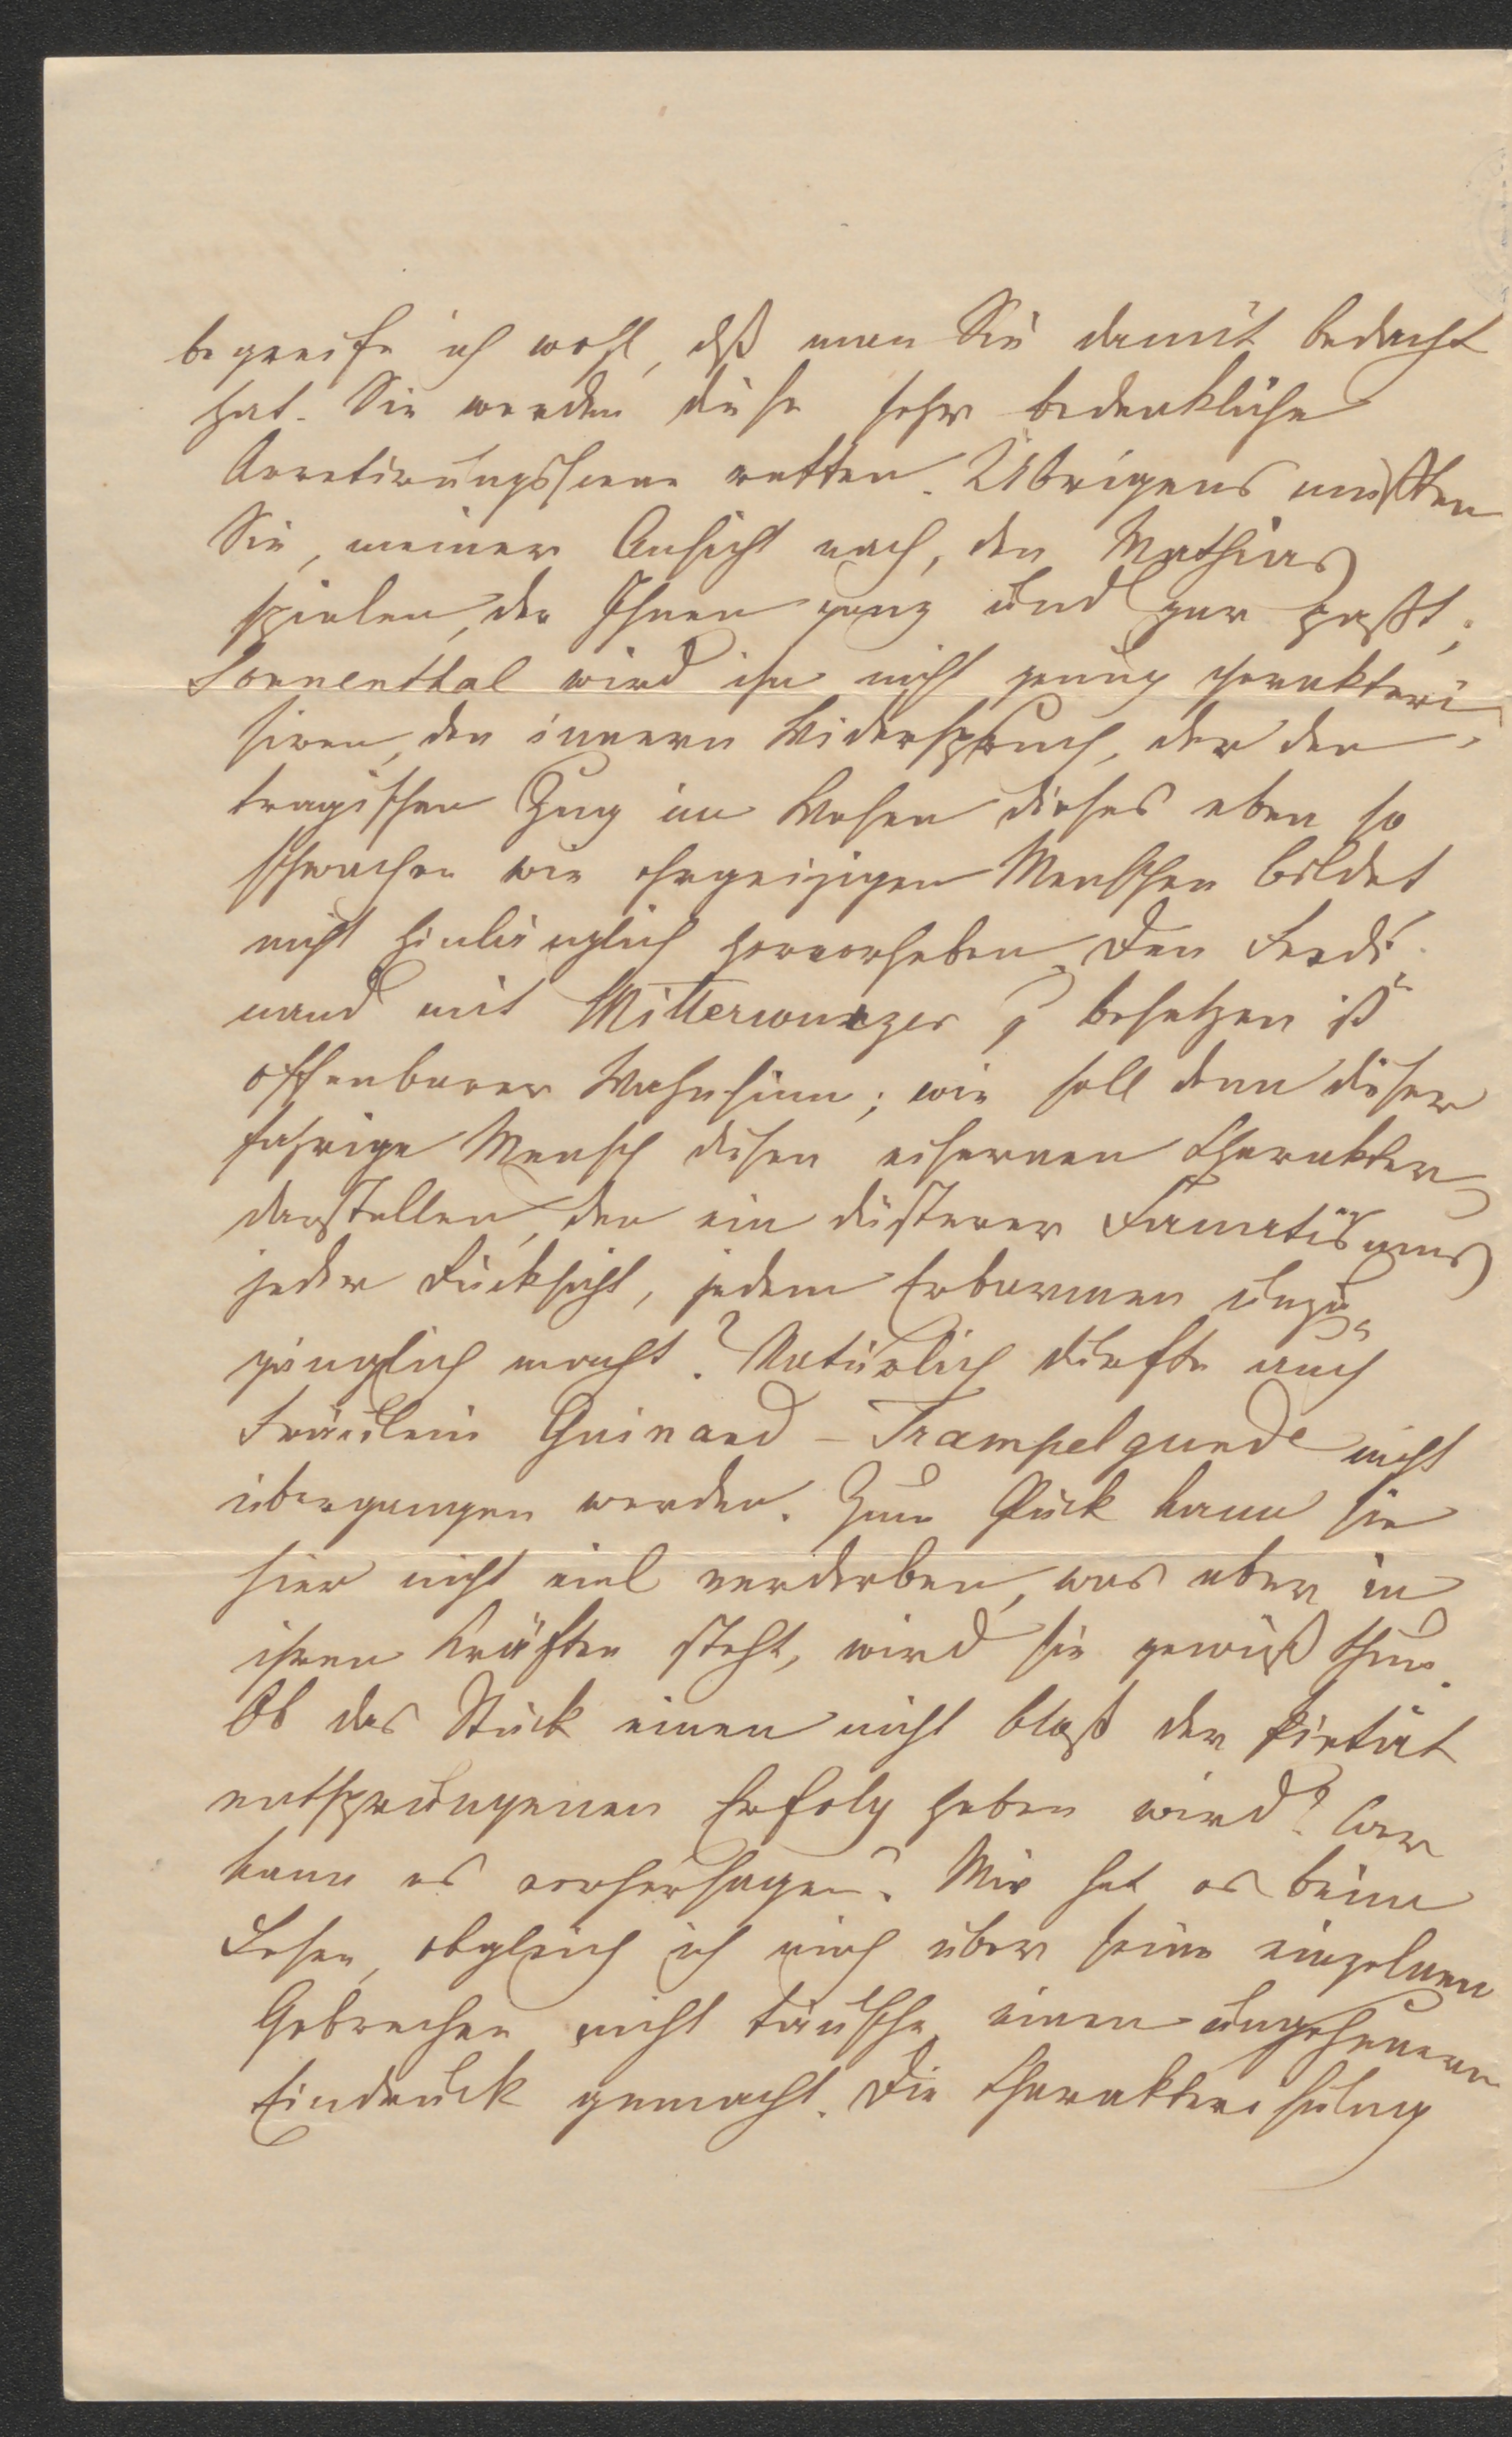 begreife ich wohl, dß man Sie damit bedacht
hat. Sie werden diese sehr bedenkliche
Arretirungsscene retten. Übrigens müßten
Sie, meiner Ansicht nach, den Mathias
spielen, der Ihnen ganz und gar paßt;
Sonnenthal wird ihn nicht genug charakteri
siren, den innern Widerspruch, der den
tragischen Zug im Wesen dieses eben so
schwachen wie ehrgeizigen Menschen bildet
nicht hinlänglich hervorheben. Den Ferdi
nand mit Mitterwurzer z besetzen ist
offenbarer Wahnsinn; wie soll denn dieser
fahrige Mensch diesen eisernen Charakter
darstellen, den ein düsterer Fanatismus
jeder Rücksicht, jedem Erbarmen unzu„
gänglich macht? Natürlich durfte auch
Fräulein Guinand – Trampelgunde nicht
übergangen werden. Zum Glück kann sie
hier nicht viel verderben, was aber in
ihren Kräften steht, wird sie gewiß thun.
Ob das Stück einen nicht bloß der Pietät
entsprungenen Erfolg haben wird? Wer
kann es vorhersagen? Mir hat es beim
Lesen, obgleich ich mich über seine einzelnen
Gebrechen nicht täusche, einen ungeheuern
Eindruck gemacht. Die Charakterisirung